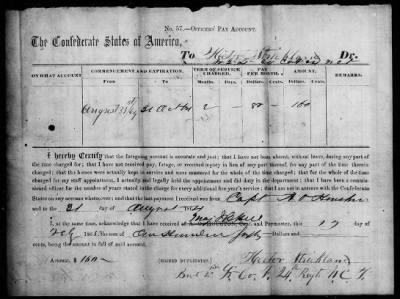 No. 57.—Officers' Pay Account.
The Confederate States of America,
To Hector Strickland Dr.
ON WHAT ACCOUNT
COMMENCEMENT AND EXPIRATION.
TERM OF SERVICE CHARGED.
PAY PER MONTH.
AMOUNT.
REMARKS.
August 31st/64 31 Oct 2 — 80 — 160
I hereby Certify that the foregoing account is accurate and just; that I have not been absent, without leave, during any part
of the time charged for; that I have not received pay, forage, or received money in lieu of any part thereof, for any part of the time therein
charged; that the horses were actually kept in service and were mustered for the whole of the time charged; that for the whole of the time
charged for my staff appointment, I actually and legally held the appointment and did duty in the department; that I have been a commissioned
officer for the number of years stated in the charge for every additional five year's service; that I am not in arrears with the Confederate
States on any account whatsoever; and that the last payment I received was from Capt A
and to the 31 day of August 1864
I, at the same time, acknowledge that I have received of Maj Paymaster, this 17 day
of Feby 1865 the sum of One Hundred Sixty Dollars and
cents, being the amount in full of said account.
Amount. $160
[SIGNED DUPLICATES.]
Hector Strickland
Co. 24th Regt N.C. T.